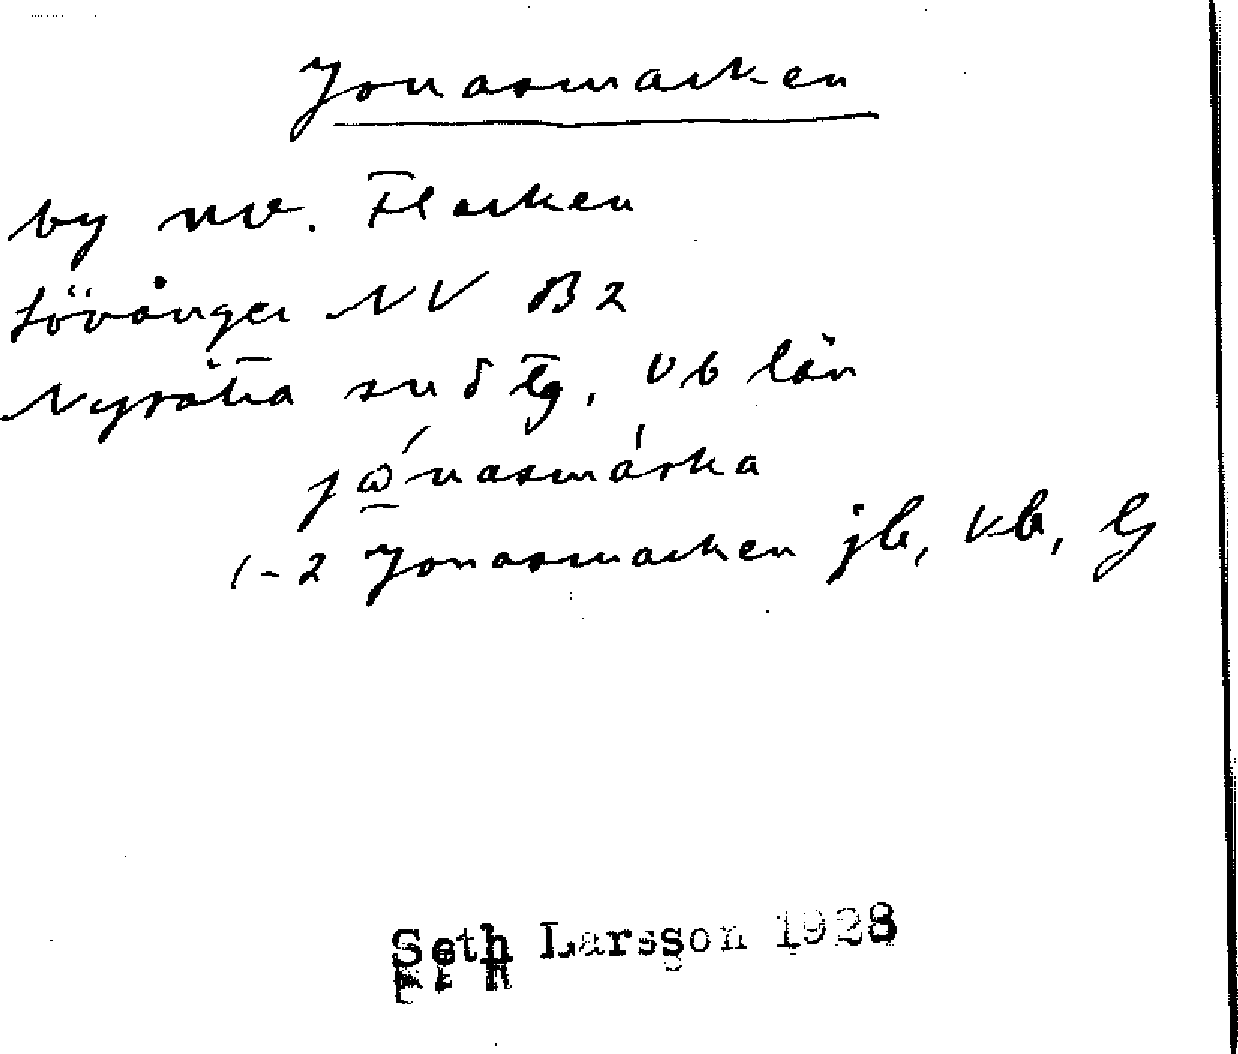 Jonasmarken
by nv. Flarken
Lövånger NV B2
Nysätra sn o lg, Vb län
jǫ́nasmárka
1-2 Jonasmarken jb, vb, lg
Seth Larsson 1928